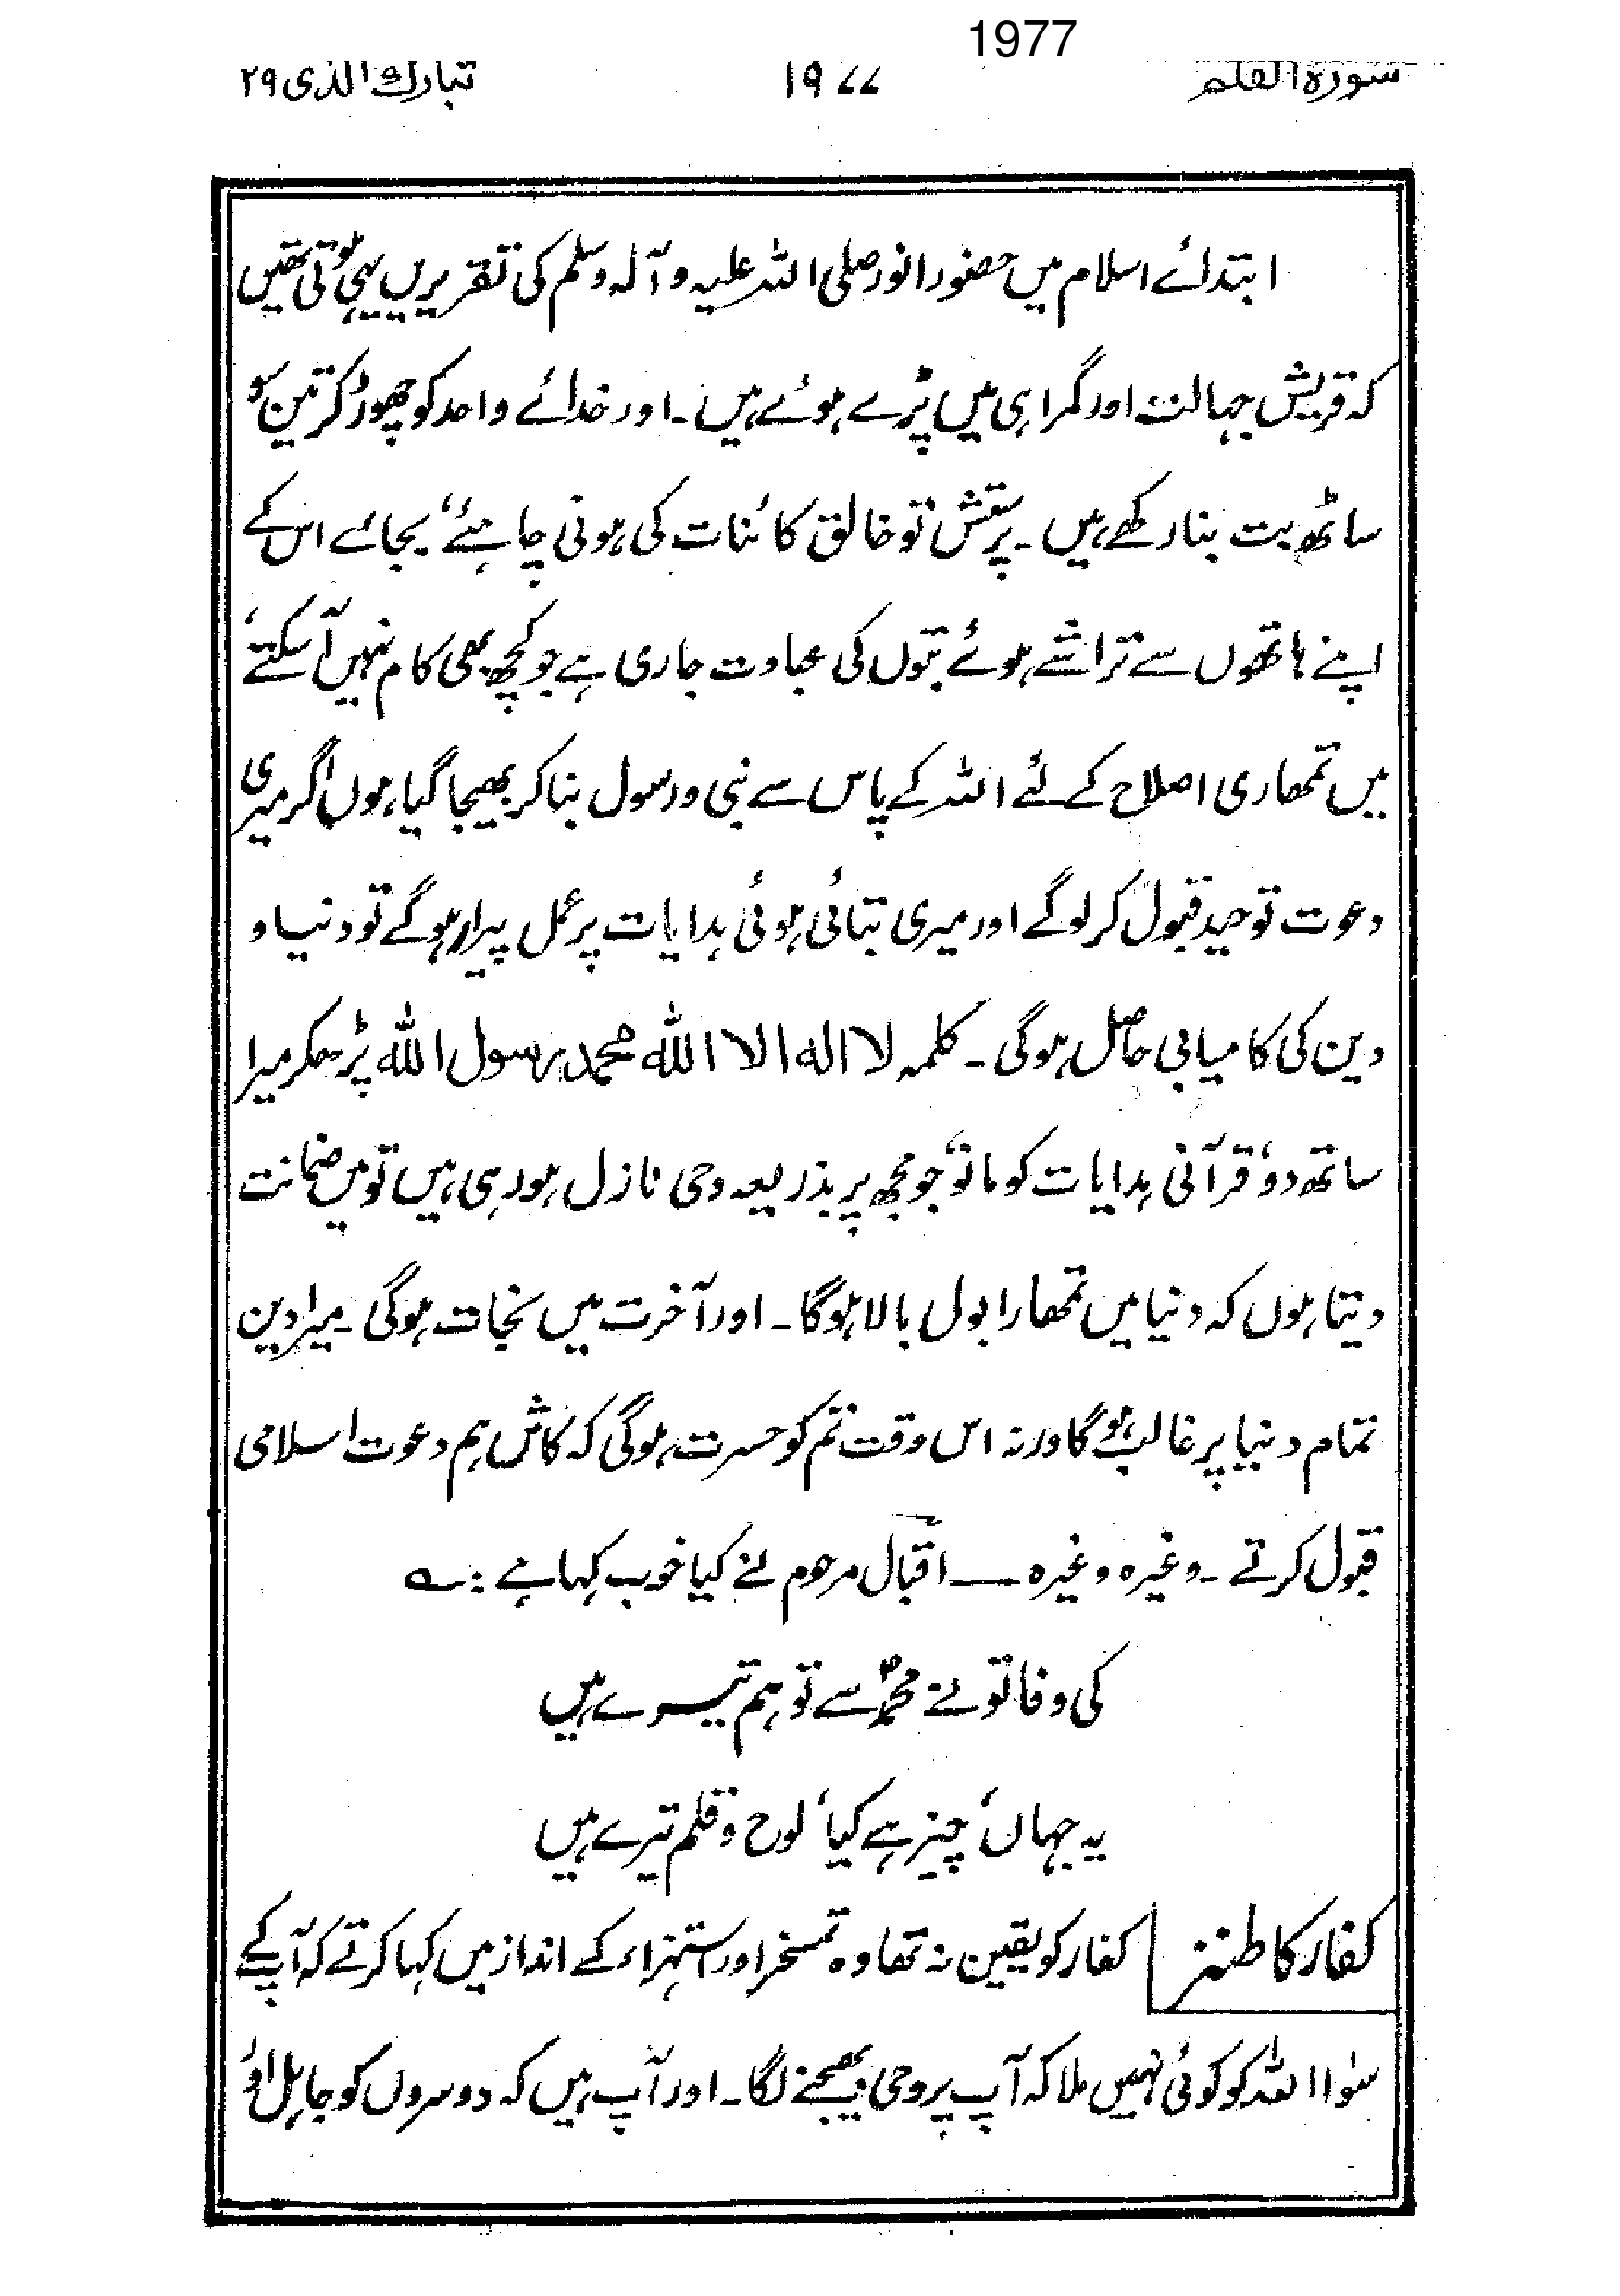 1977
سورۃ القلم ۱۹۷۷ تبارک الذی ۲۹
ابتدائے اسلام میں حضور انور صلی اللہ علیہ و آلہ وسلم کی تقریریں یہی ہوتی تھیں
کہ قریش جہالت اور گمراہی میں پڑے ہوئے ہیں ۔ اور خدائے واحد کو چھوڑ کر تین سو
ساٹھ بت بنا رکھے ہیں ۔ پرستش تو خالق کائنات کی ہونی چاہئے، بجائے اس کے
اپنے ہاتھوں سے تراشے ہوئے بتوں کی عبادت جاری ہے جو کچھ بھی کام نہیں آسکتے،
میں تمھاری اصلاح کے لئے اللہ کے پاس سے نبی و رسول بنا کر بھیجا گیا ہوں اگر میری
دعوت توحید قبول کر لو گے اور میری بتائی ہوئی ہدایات پر عمل پیرا رہو گے تو دنیا و
دین کی کامیابی حاصل ہو گی ۔ کلمہ لا الہ الا اللہ محمد رسول اللہ پڑھکر میرا
ساتھ دو، قرآنی ہدایات کو مانو، جو مجھ پر بذریعہ وحی نازل ہو رہی ہیں تو میں ضمانت
دیتا ہوں کہ دنیا میں تمھارا بول بالا ہوگا ۔ اور آخرت میں نجات ہو گی ۔ میرا دین
تمام دنیا پر غالب ہو گا ورنہ اس وقت تم کو حسرت ہو گی کہ کاش ہم دعوت اسلامی
قبول کرتے ۔ وغیرہ وغیرہ ــــ اقبال مرحوم نے کیا خوب کہا ہے :۔ ؎
کی وفا تو نے محمدؐ سے تو ہم تیرے ہیں
یہ جہاں، چیز ہے کیا، لوح و قلم تیرے ہیں
کفار کا طنز کفار کو یقین نہ تھا وہ تمسخر اور استہزاء کے انداز میں کہا کرتے کہ آپ کے
سوا اللہ کو کوئی نہیں ملا کہ آپ پر وحی بھیجنے لگا ۔ اور آپ ہیں کہ دوسروں کو جاہل اور